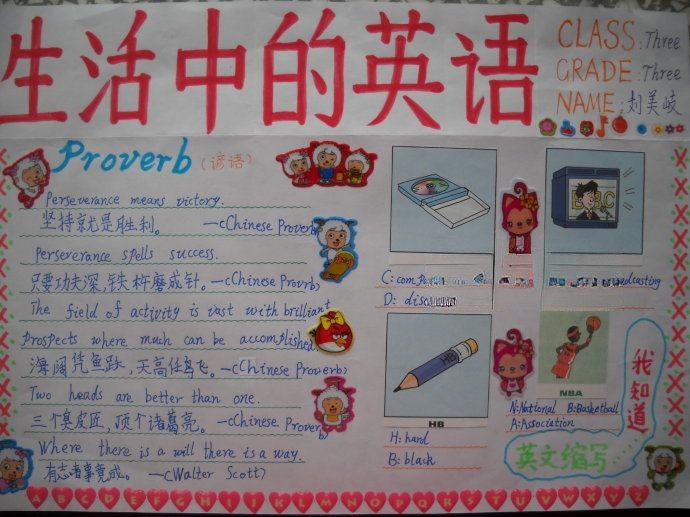 生活中的英语
CLASS:Three
GRADE:Three
NAME:刘美岐
Proverb(谚语)
Perseverance means victory.
坚持就是胜利。 —(Chinese Proverb)
Perseverance spells success.
只要功夫深,铁杵磨成针。—(Chinese Provrb)
The field of activity is vast with brilliant
prospects where much can be accomplished.
海阔凭鱼跃,天高任鸟飞。—(Chinese Proverb)
Two heads are better than one.
三个臭皮匠,顶个诸葛亮。—(Chinese Proverb)
Where there is a will there is a way.
有志者事竟成。 —(Walter Scott)
C:
D:
HB
H: hard
B: black
NBA
N:National B:Basketball
A:Association
我知道
英文缩写……
A B C D E F G H I J K L M N O P Q R S T U V W X Y Z